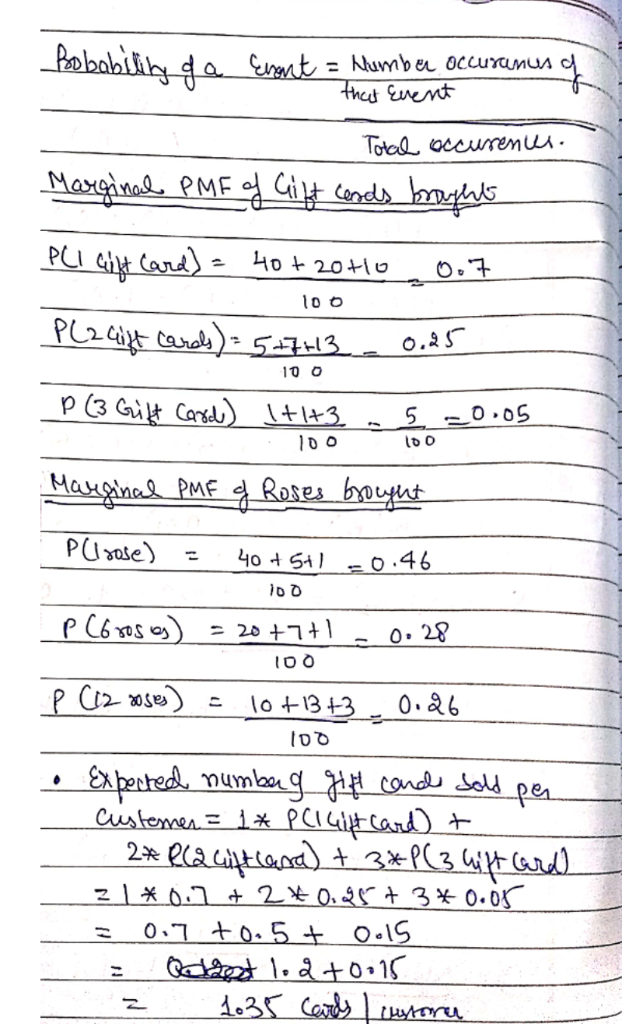 Probability of a Event = Number occurances of
that Event
Total occurences.
Marginal PMF of Gift cards brought
P(1 Gift Card) = 40 + 20+10 = 0.7
100
P(2 Gift Cards) = 5+7+13 = 0.25
100
P (3 Gift Card) 1+1+3 = 5 = 0.05
100 100
Marginal PMF of Roses brought
P(1 rose) = 40 + 5+1 = 0.46
100
P (6 roses) = 20 +7+1 = 0.28
100
P (12 roses) = 10 +13+3 = 0.26
100
• Expected number of gift cards sold per
Customer = 1* P(1 Gift Card) +
2* P(2 Gift Card) + 3*P(3 Gift Card)
= 1 * 0.7 + 2 * 0.25 + 3 * 0.05
= 0.7 + 0.5 + 0.15
= 1.2 + 0.15
= 1.35 Cards | customer